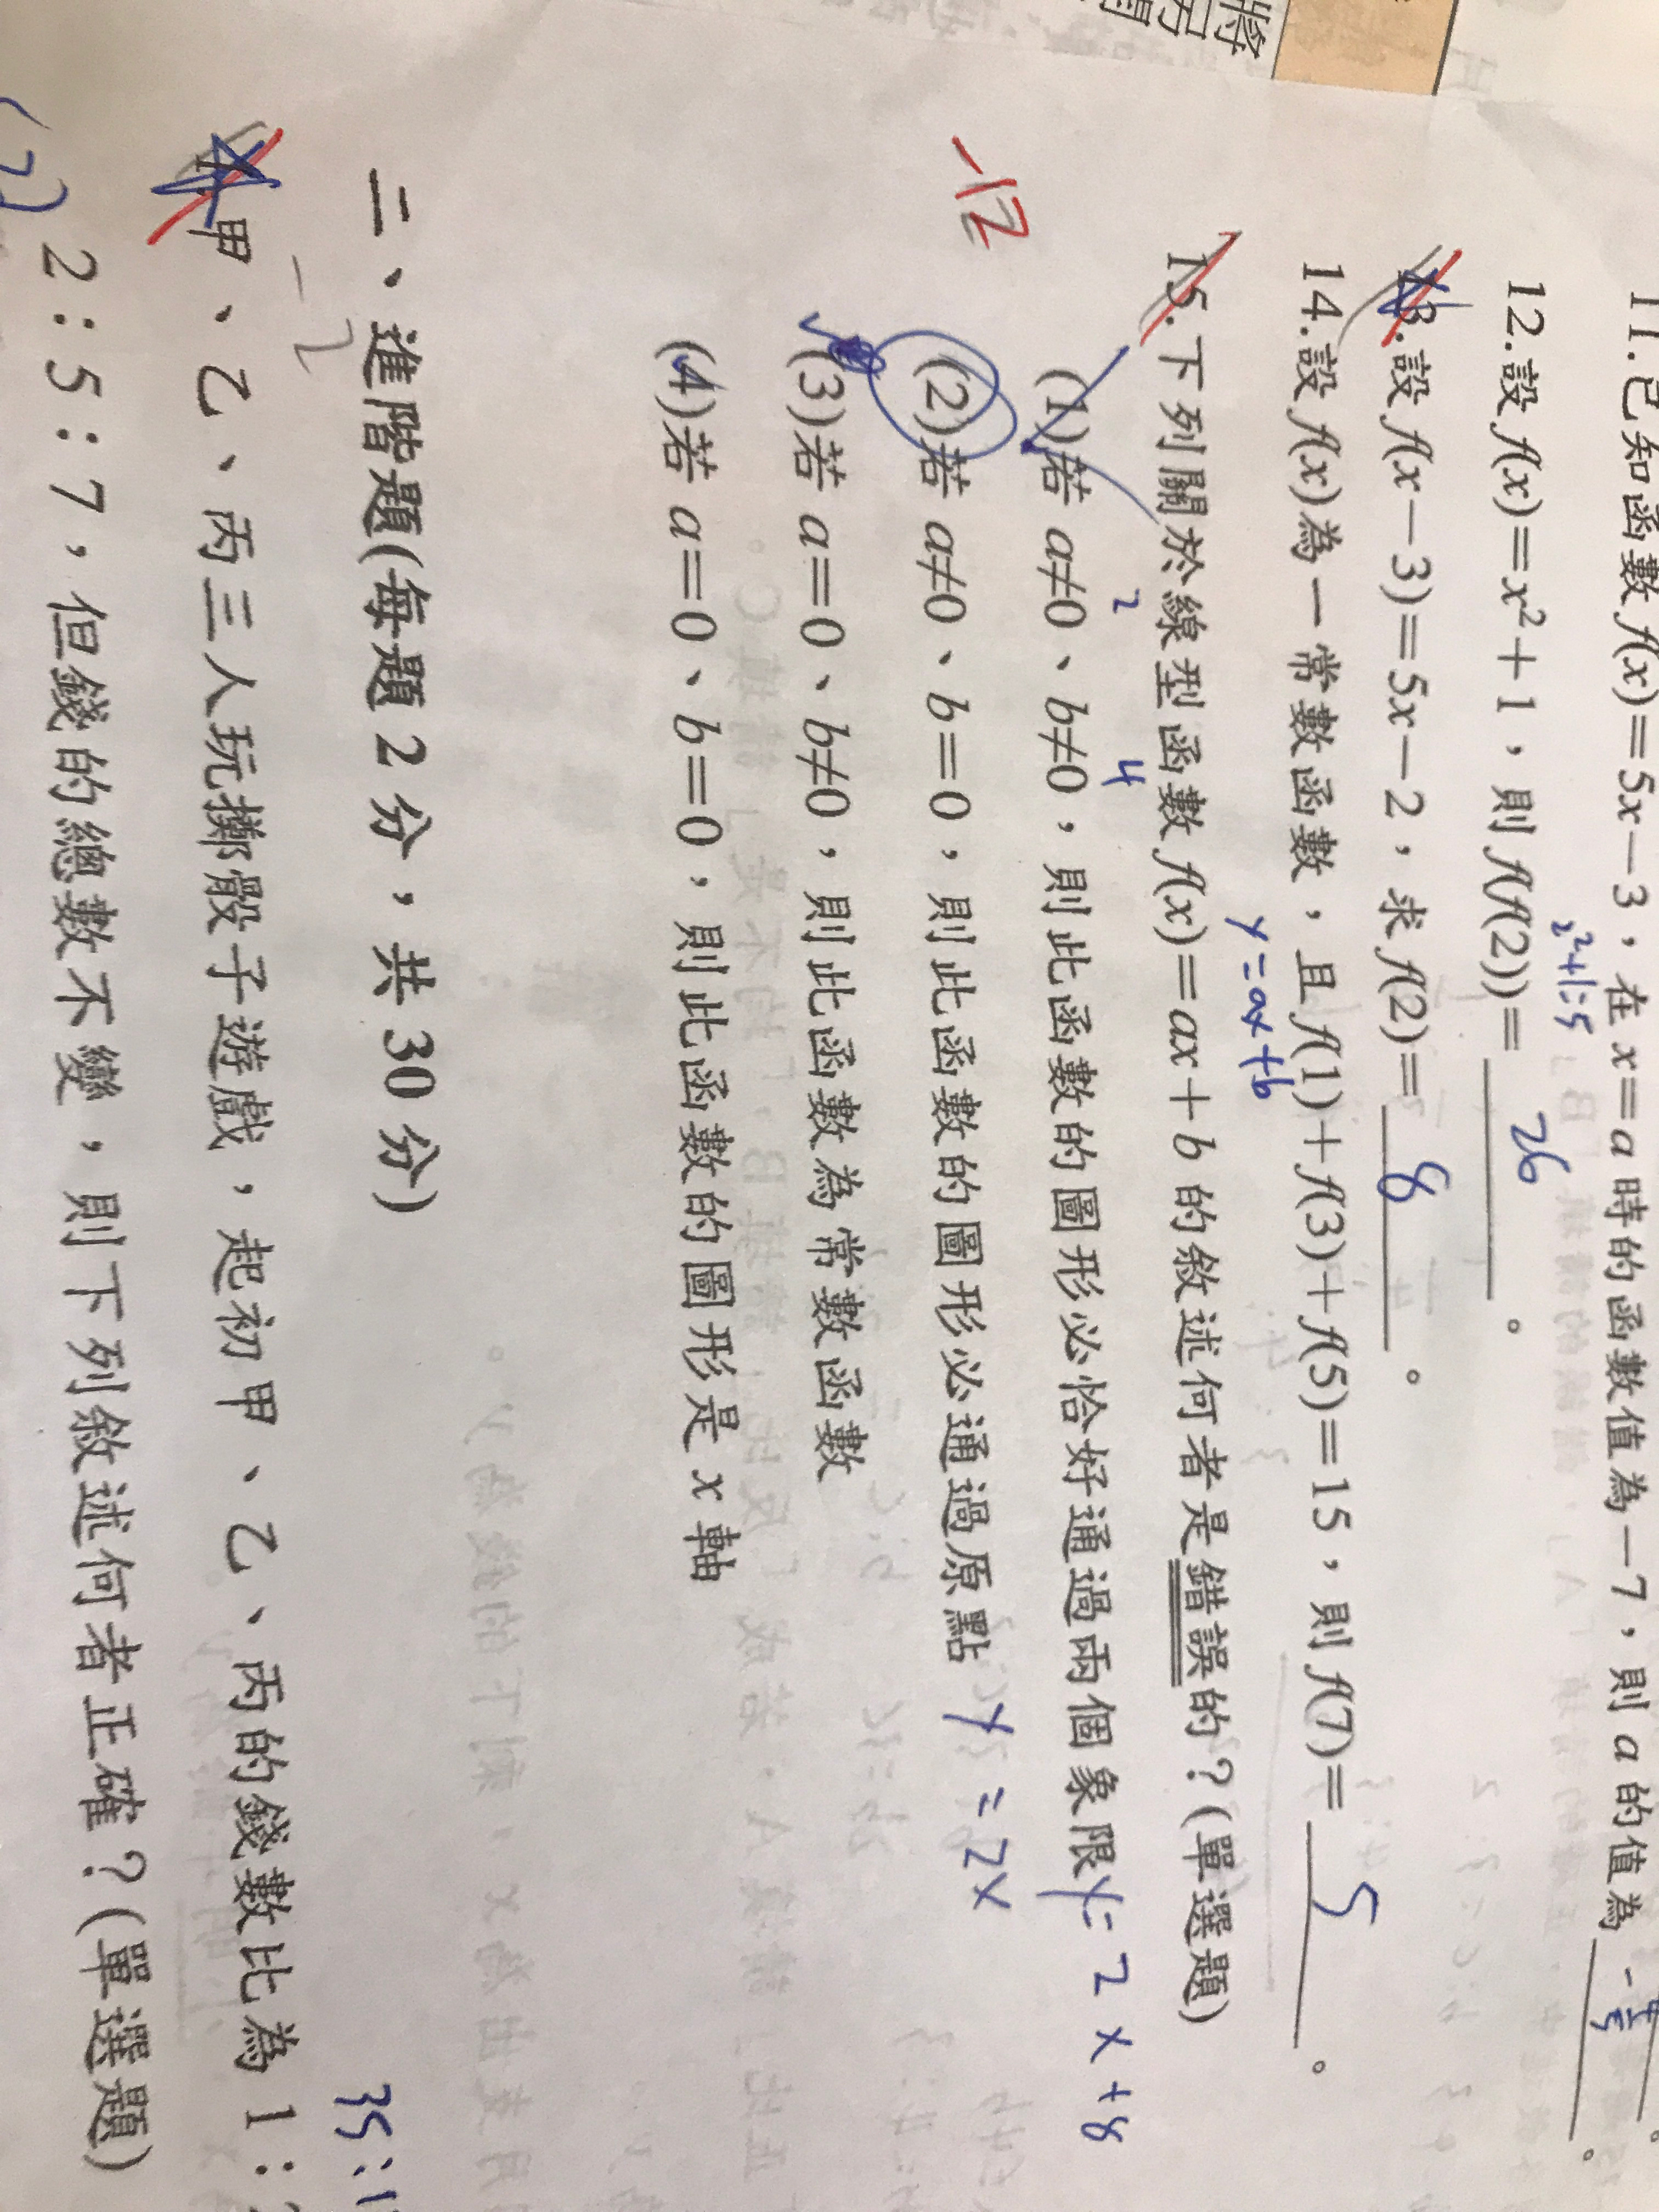 11.已知函數 f(x)=5x-3,在 x=a 時的函數值為-7,則 a 的值為 -4/5 。
2²+1=5
12.設 f(x)=x²+1,則 f(f(2))= 26 。
13.設 f(x-3)=5x-2,求 f(2)= 8 。
14.設 f(x)為一常數函數,且 f(1)+f(3)+f(5)=15,則 f(7)= 5 。
y=ax+b
15.下列關於線型函數 f(x)=ax+b 的敘述何者是錯誤的?(單選題)
2 4
(1)若 a≠0、b≠0,則此函數的圖形必恰好通過兩個象限 y=2x+8
-12
(2)若 a≠0、b=0,則此函數的圖形必通過原點 y=2x
(3)若 a=0、b≠0,則此函數為常數函數
(4)若 a=0、b=0,則此函數的圖形是 x 軸
二、進階題(每題 2 分,共 30 分)
-2
35:1
甲、乙、丙三人玩擲骰子遊戲,起初甲、乙、丙的錢數比為 1:
2:5:7,但錢的總數不變,則下列敘述何者正確?(單選題)